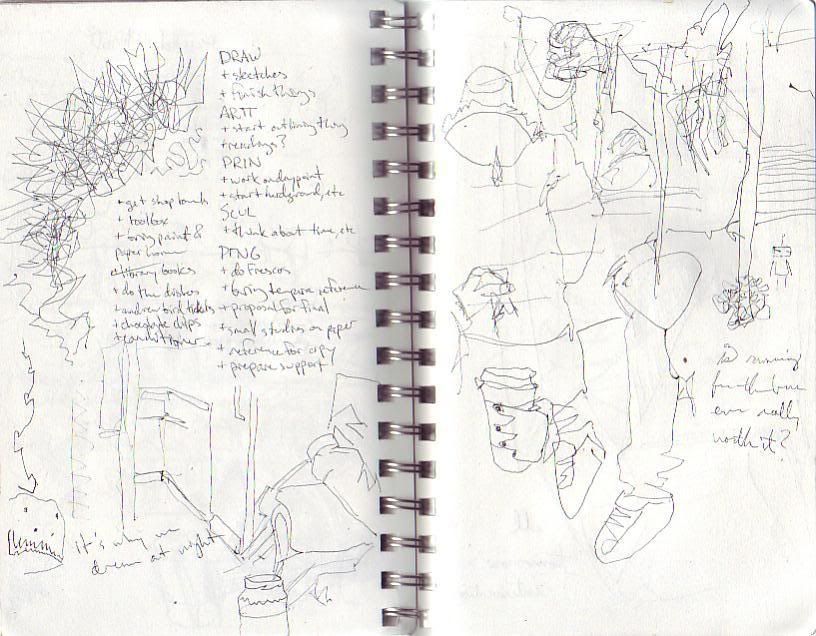 DRAW
+ sketches
+ finish things
ART
+ start outlining thing
readings?
PRIN
+ work on drypoint
+ start hardground, etc
SCUL
+ think about time, etc
PTNG
+ do frescos
+ bring tempera reference
+ proposal for final
+ small studies on paper
+ reference for copy
+ prepare support!
+ get shop towels
+ toolbox
+ bring paint &
paper home
+ library books
+ do the dishes
+ andrew bird tickets
+ chocolate chips
it's why we
dream at night
is running
for the bus
ever really
worth it?